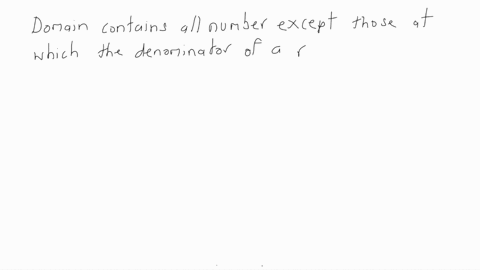 Domain contains all number except those at
which the denominator of a r